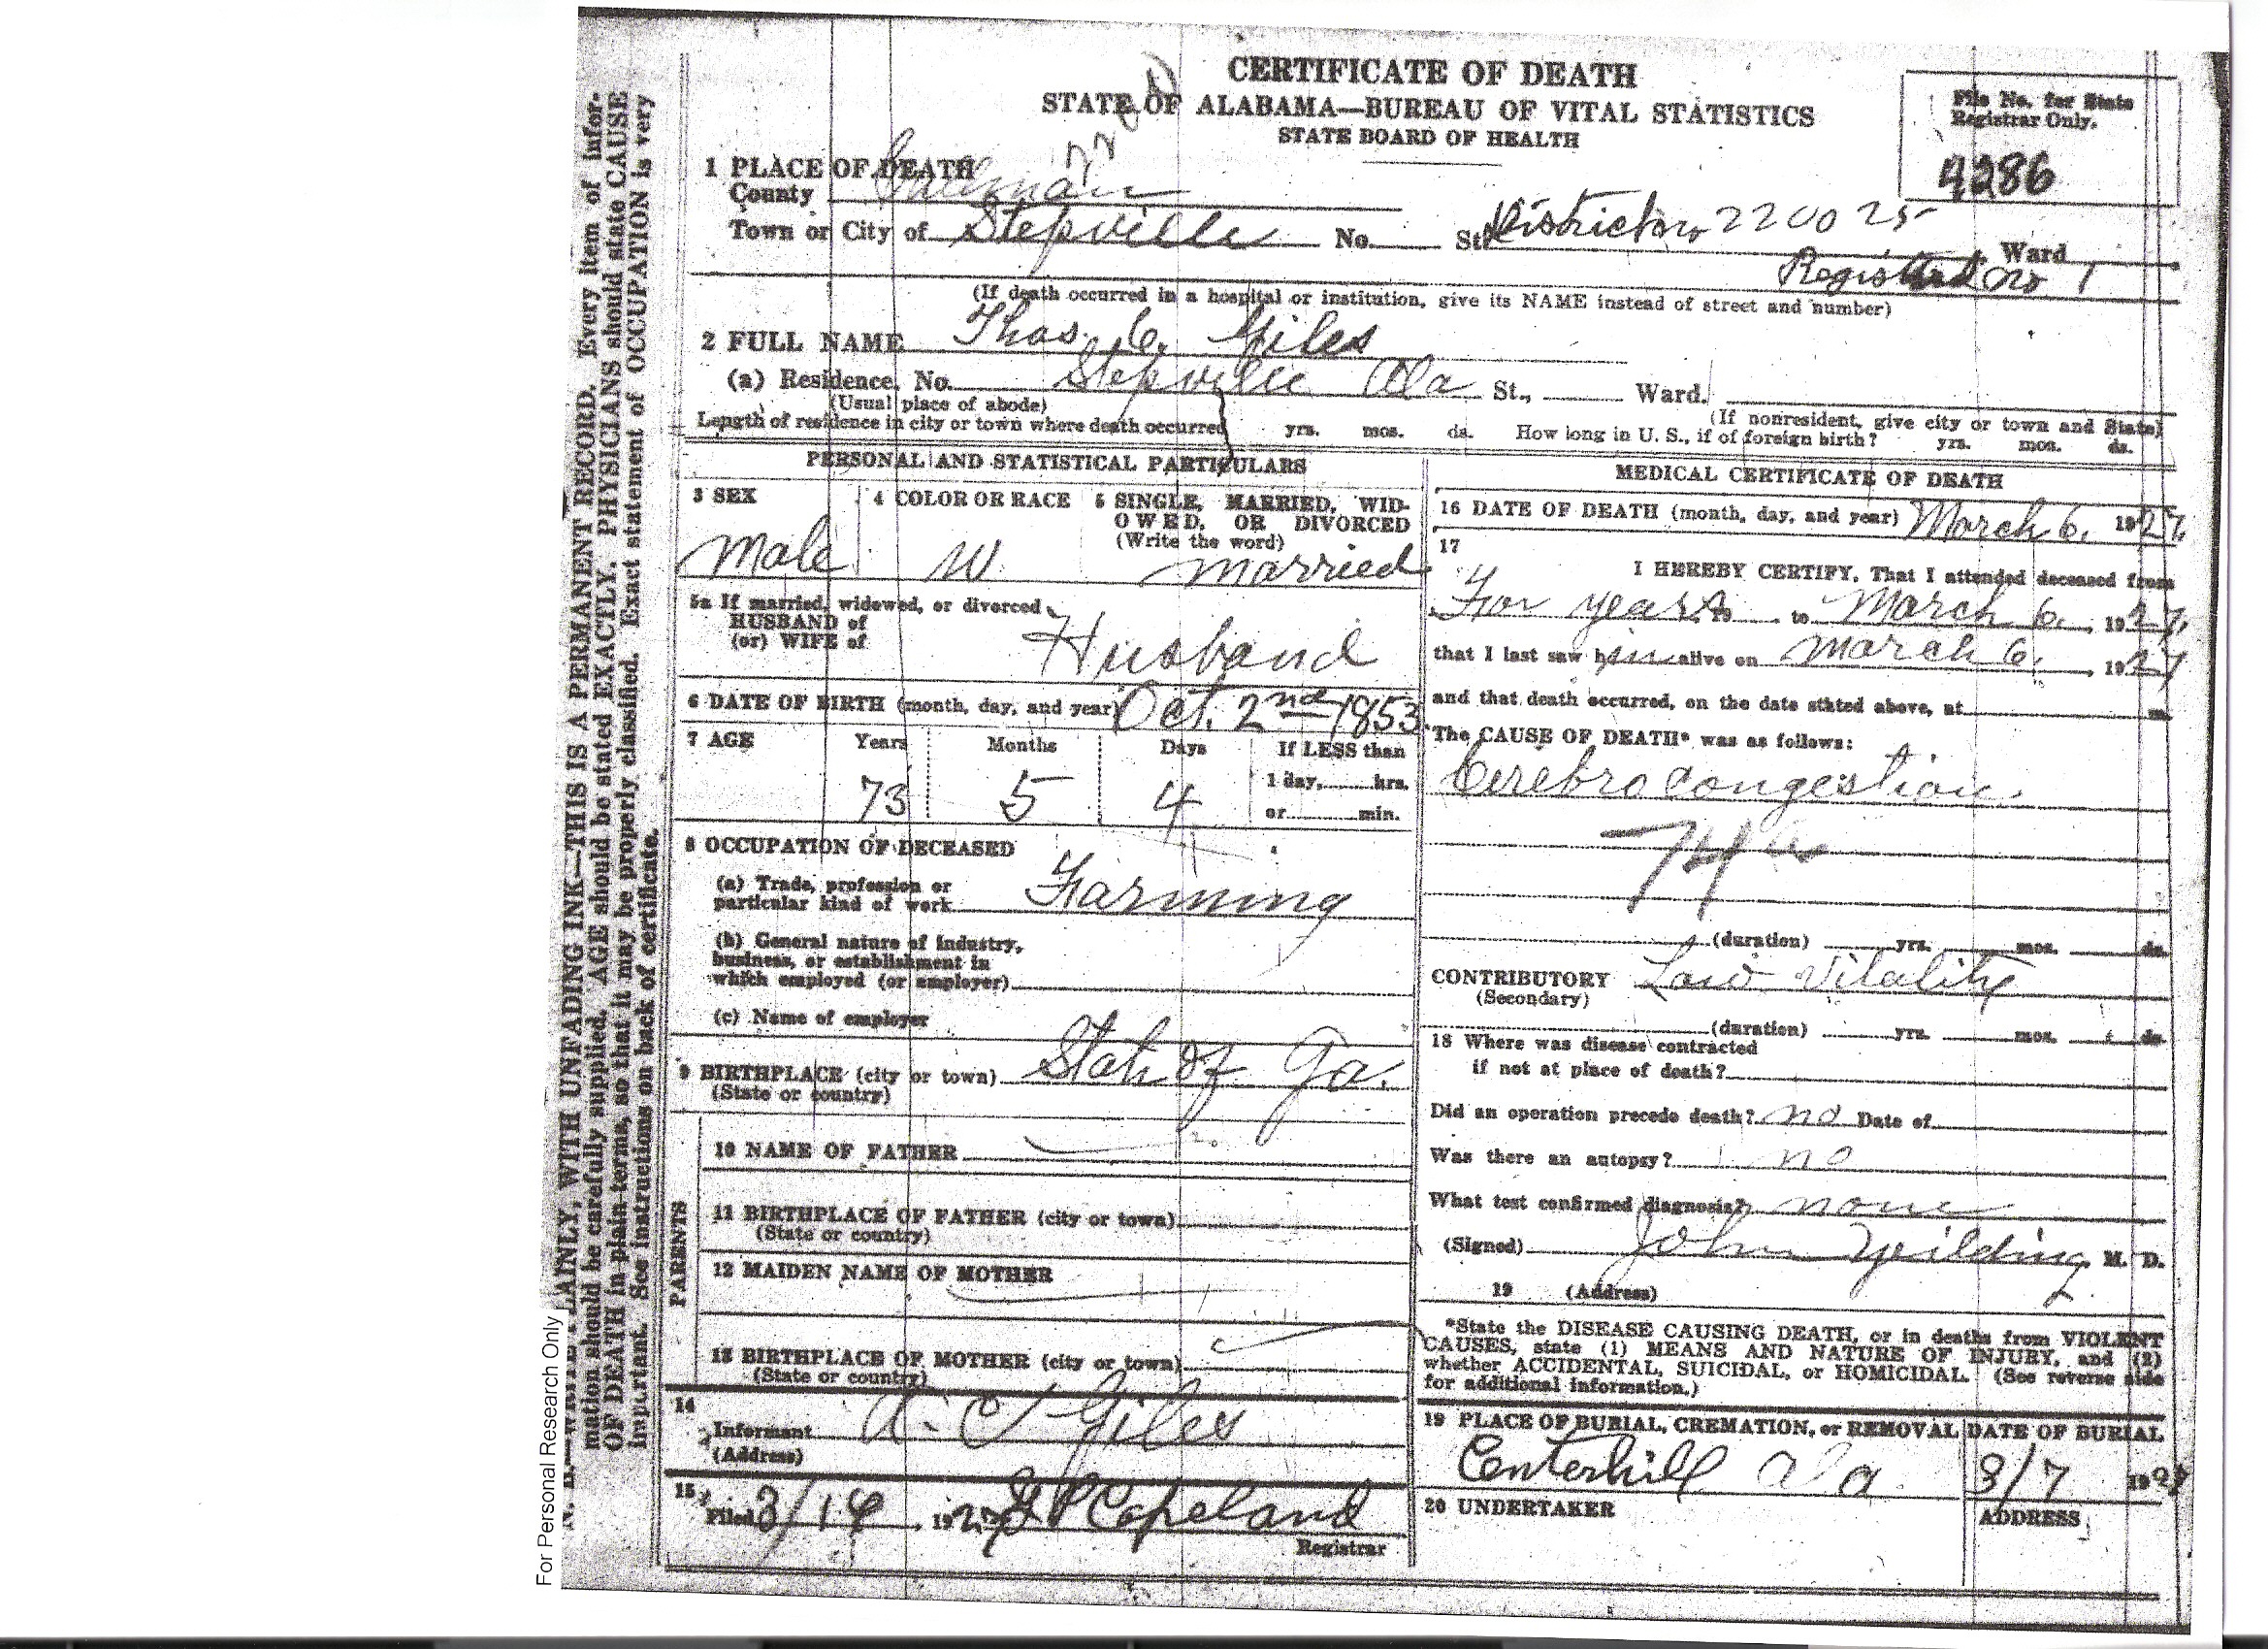 CERTIFICATE OF DEATH
STATE OF ALABAMA—BUREAU OF VITAL STATISTICS
STATE BOARD OF HEALTH
File No. for State
Registrar Only.
4286
1 PLACE OF DEATH
County Cullman
Town or City of Stepville No. St. District no 220025 Ward
Registered no 1
(If death occurred in a hospital or institution, give its NAME instead of street and number)
2 FULL NAME Thos. C. Giles
(a) Residence. No. Stepville Ala St., Ward.
(Usual place of abode) (If nonresident, give city or town and State)
Length of residence in city or town where death occurred yrs. mos. ds. How long in U. S., if of foreign birth? yrs. mos. ds.
PERSONAL AND STATISTICAL PARTICULARS
3 SEX
Male
4 COLOR OR RACE
W
5 SINGLE, MARRIED, WID-
OWED, OR DIVORCED
(Write the word)
married
5a If married, widowed, or divorced
HUSBAND of
(or) WIFE of
Husband
6 DATE OF BIRTH (month, day, and year) Oct. 2nd 1853
7 AGE Years Months Days If LESS than
1 day, hrs.
73 5 4
or min.
8 OCCUPATION OF DECEASED
(a) Trade, profession or
particular kind of work Farming
(b) General nature of industry,
business, or establishment in
which employed (or employer)
(c) Name of employer
9 BIRTHPLACE (city or town) State of Ga.
(State or country)
PARENTS
10 NAME OF FATHER
11 BIRTHPLACE OF FATHER (city or town)
(State or country)
12 MAIDEN NAME OF MOTHER
13 BIRTHPLACE OF MOTHER (city or town)
(State or country)
14
Informant Giles
(Address)
15
Filed 3/14, 1927 Copeland
Registrar
MEDICAL CERTIFICATE OF DEATH
16 DATE OF DEATH (month, day, and year) March 6. 1927
17
I HEREBY CERTIFY, That I attended deceased from
For years, 19 to March 6., 1927
that I last saw him alive on March 6., 1927
and that death occurred, on the date stated above, at m.
The CAUSE OF DEATH* was as follows:
Cerebro congestion
(duration) yrs. mos. ds.
CONTRIBUTORY Low Vitality
(Secondary)
(duration) yrs. mos. ds.
18 Where was disease contracted
if not at place of death?
Did an operation precede death? no Date of
Was there an autopsy? no
What test confirmed diagnosis? none
(Signed) John Yeilding M. D.
19 (Address)
*State the DISEASE CAUSING DEATH, or in deaths from VIOLENT
CAUSES, state (1) MEANS AND NATURE OF INJURY, and (2)
whether ACCIDENTAL, SUICIDAL, or HOMICIDAL. (See reverse side
for additional information.)
19 PLACE OF BURIAL, CREMATION, or REMOVAL
Centerhill Ala
DATE OF BURIAL
3/7 1927
20 UNDERTAKER
ADDRESS
N. B.—WRITE PLAINLY, WITH UNFADING INK—THIS IS A PERMANENT RECORD. Every item of infor-
mation should be carefully supplied. AGE should be stated EXACTLY. PHYSICIANS should state CAUSE
OF DEATH in plain terms, so that it may be properly classified. Exact statement of OCCUPATION is very
important. See instructions on back of certificate.
For Personal Research Only